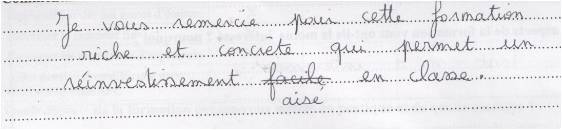 Je vous remercie pour cette formation
riche et concrète qui permet un
réinvestissement facile en classe.
aisé